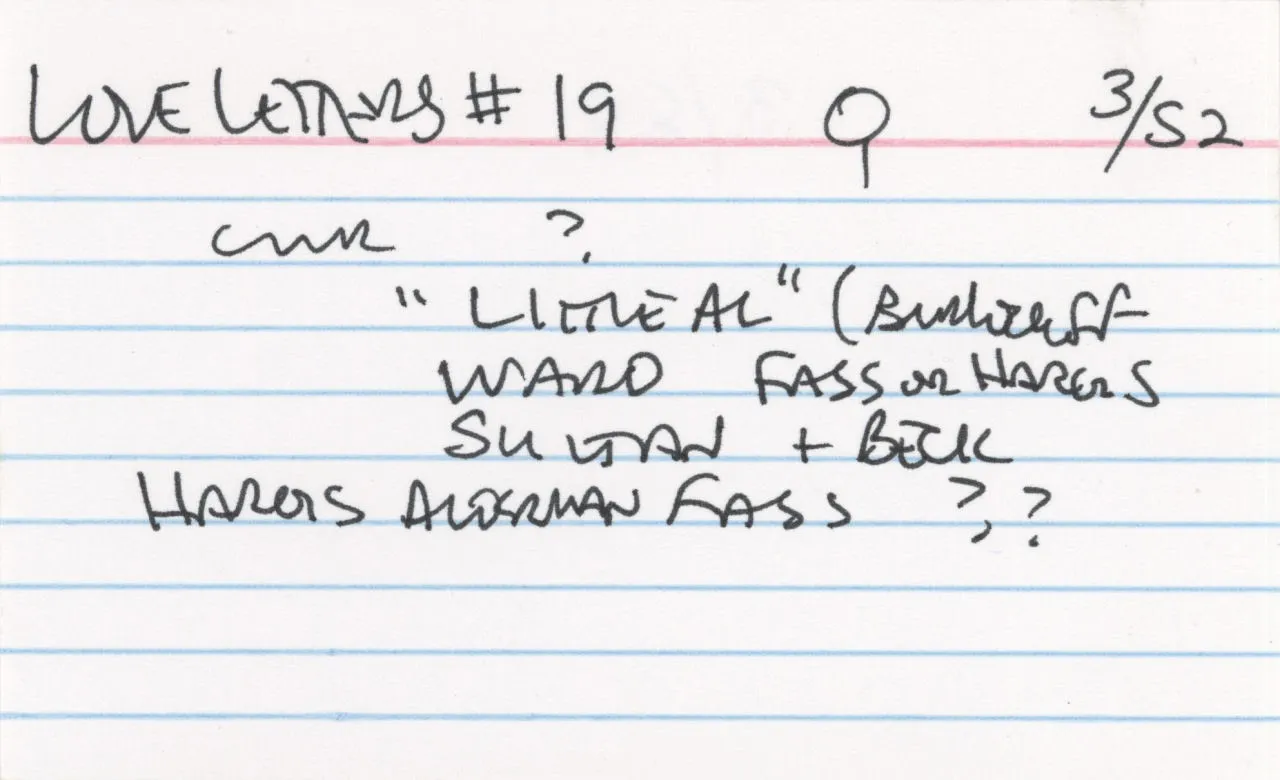 LOVE LETTERS # 19 Q 3/52
CVR ?
"LITTLE AL" (
WARD FASS OR HARRIS
SULTAN + BECK
HARRIS ALDERMAN FASS ? ?